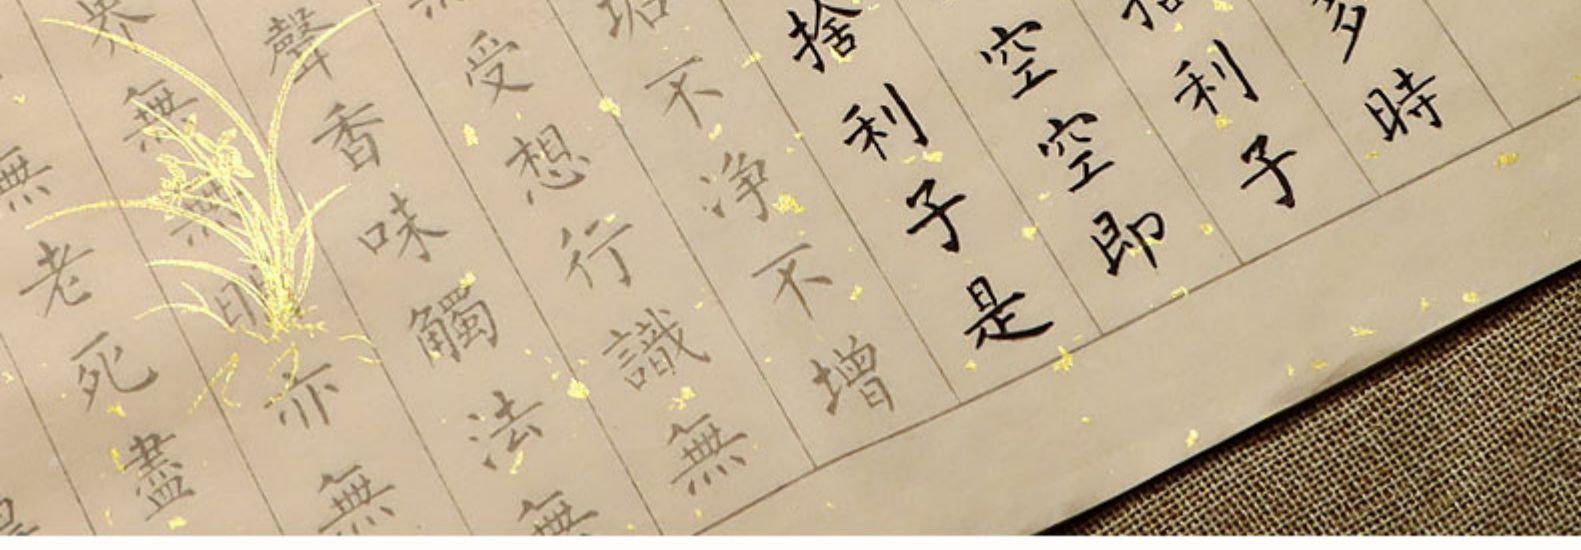 多時
利子
空空即
捨利子是
不淨不增
受想行識無
聲香味觸法無
界無無明亦無
無老死盡